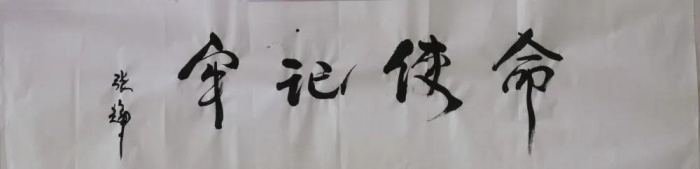 牢记使命
张